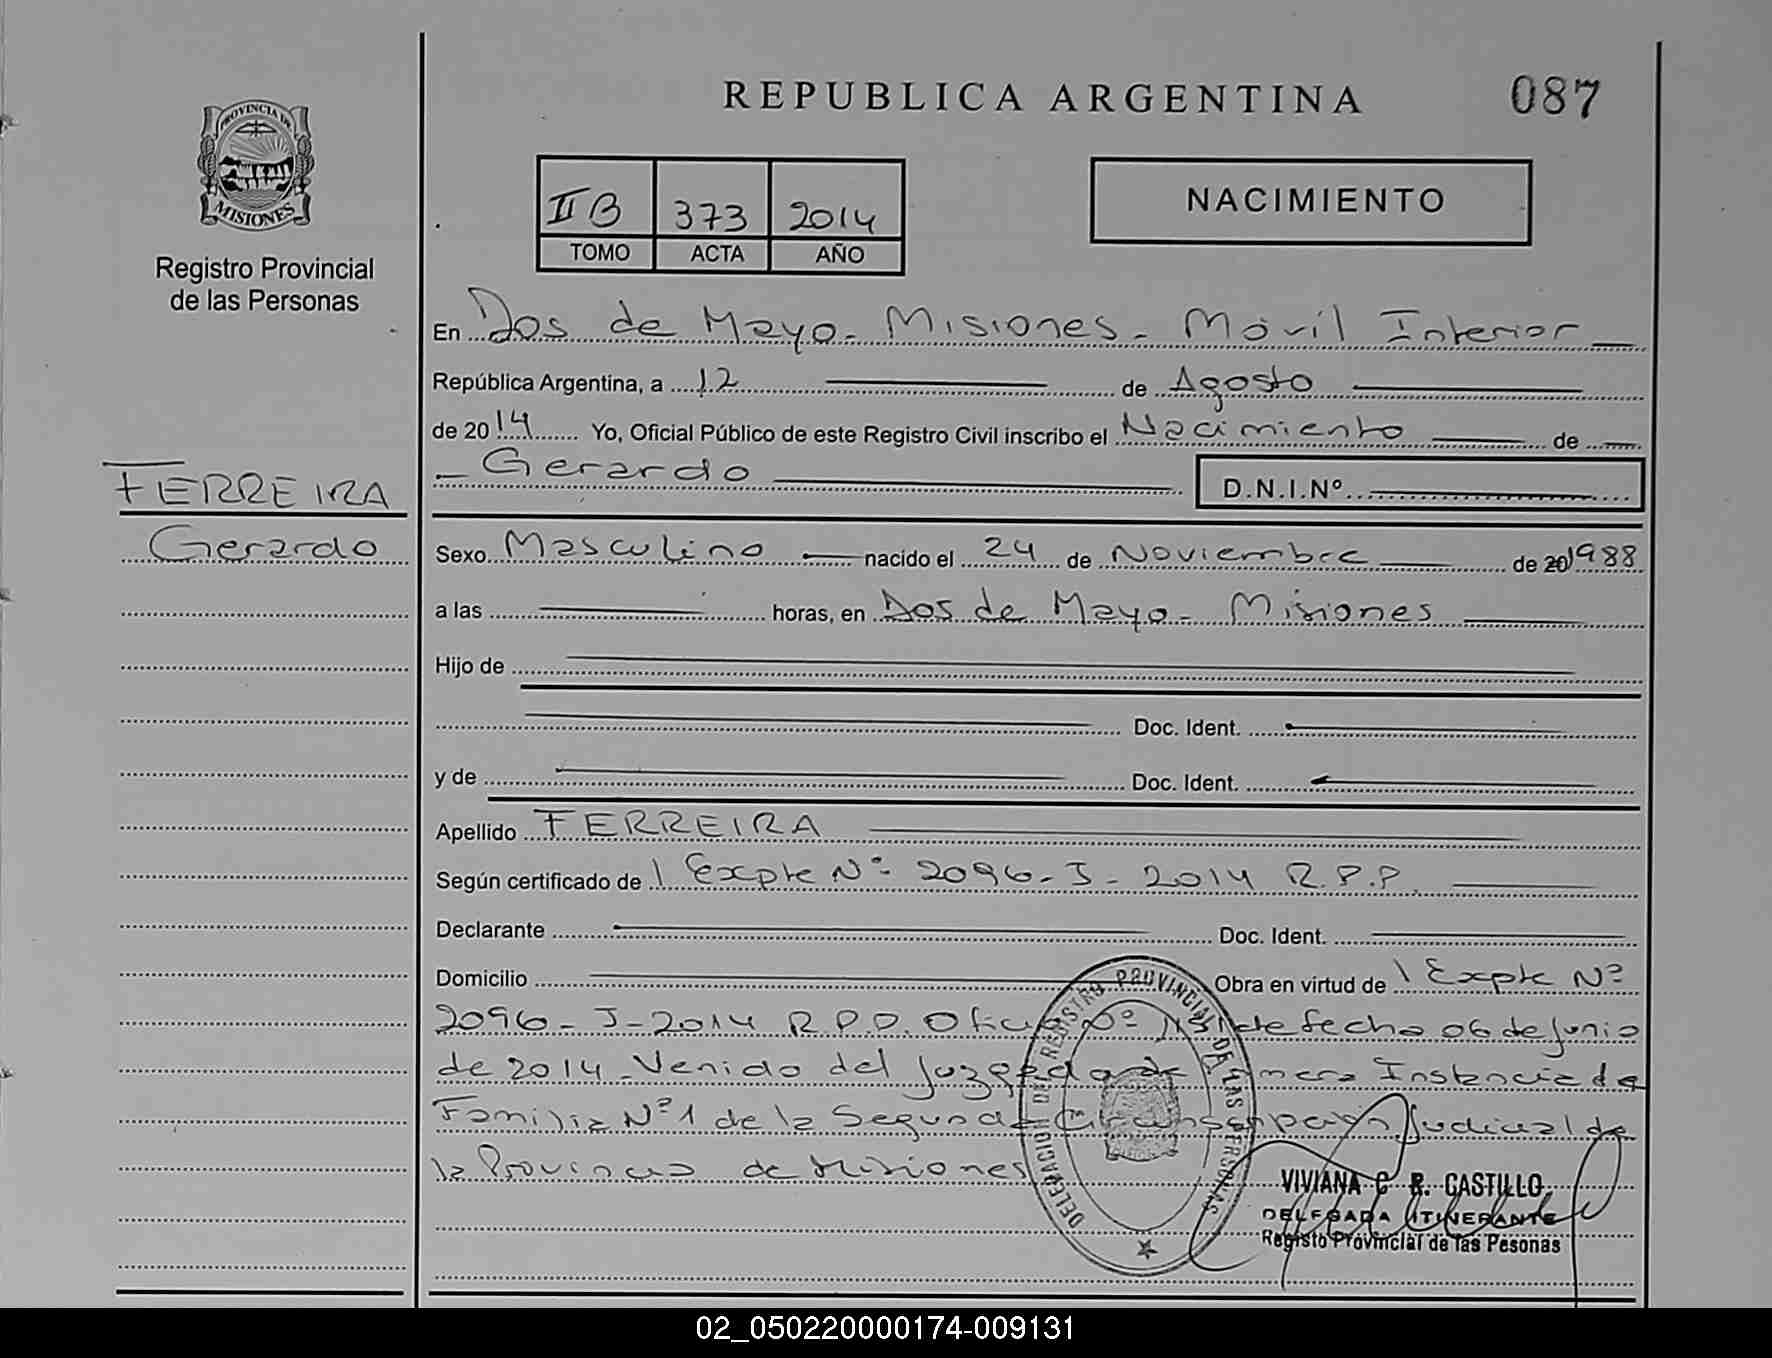 REPUBLICA ARGENTINA
087
PROVINCIA DE
MISIONES
Registro Provincial
de las Personas
II B 373 2014
TOMO ACTA AÑO
NACIMIENTO
En Dos de Mayo - Misiones - Móvil Interior
República Argentina, a 12 de Agosto
de 2014 Yo, Oficial Público de este Registro Civil inscribo el Nacimiento de
Gerardo D.N.I.Nº
FERREIRA
Gerardo
Sexo Masculino nacido el 24 de Noviembre de 20 1988
a las horas, en Dos de Mayo - Misiones
Hijo de
Doc. Ident.
y de Doc. Ident.
Apellido FERREIRA
Según certificado de Expte Nº 2096 - J - 2014 R.P.P.
Declarante Doc. Ident.
Domicilio Obra en virtud de Expte Nº
2096 - J - 2014 R.P.P. Oficio Nº de fecha 06 de Junio
de 2014 - Venido del Juzgado de Primera Instancia de
Familia Nº 1 de la Segunda Circunscripción Judicial de
la Provincia de Misiones
DELEGACION DEL REGISTRO PROVINCIAL DE LAS PERSONAS
VIVIANA C R. CASTILLO
DELEGADA ITINERANTE
Registo Provincial de las Pesonas
02_050220000174-009131